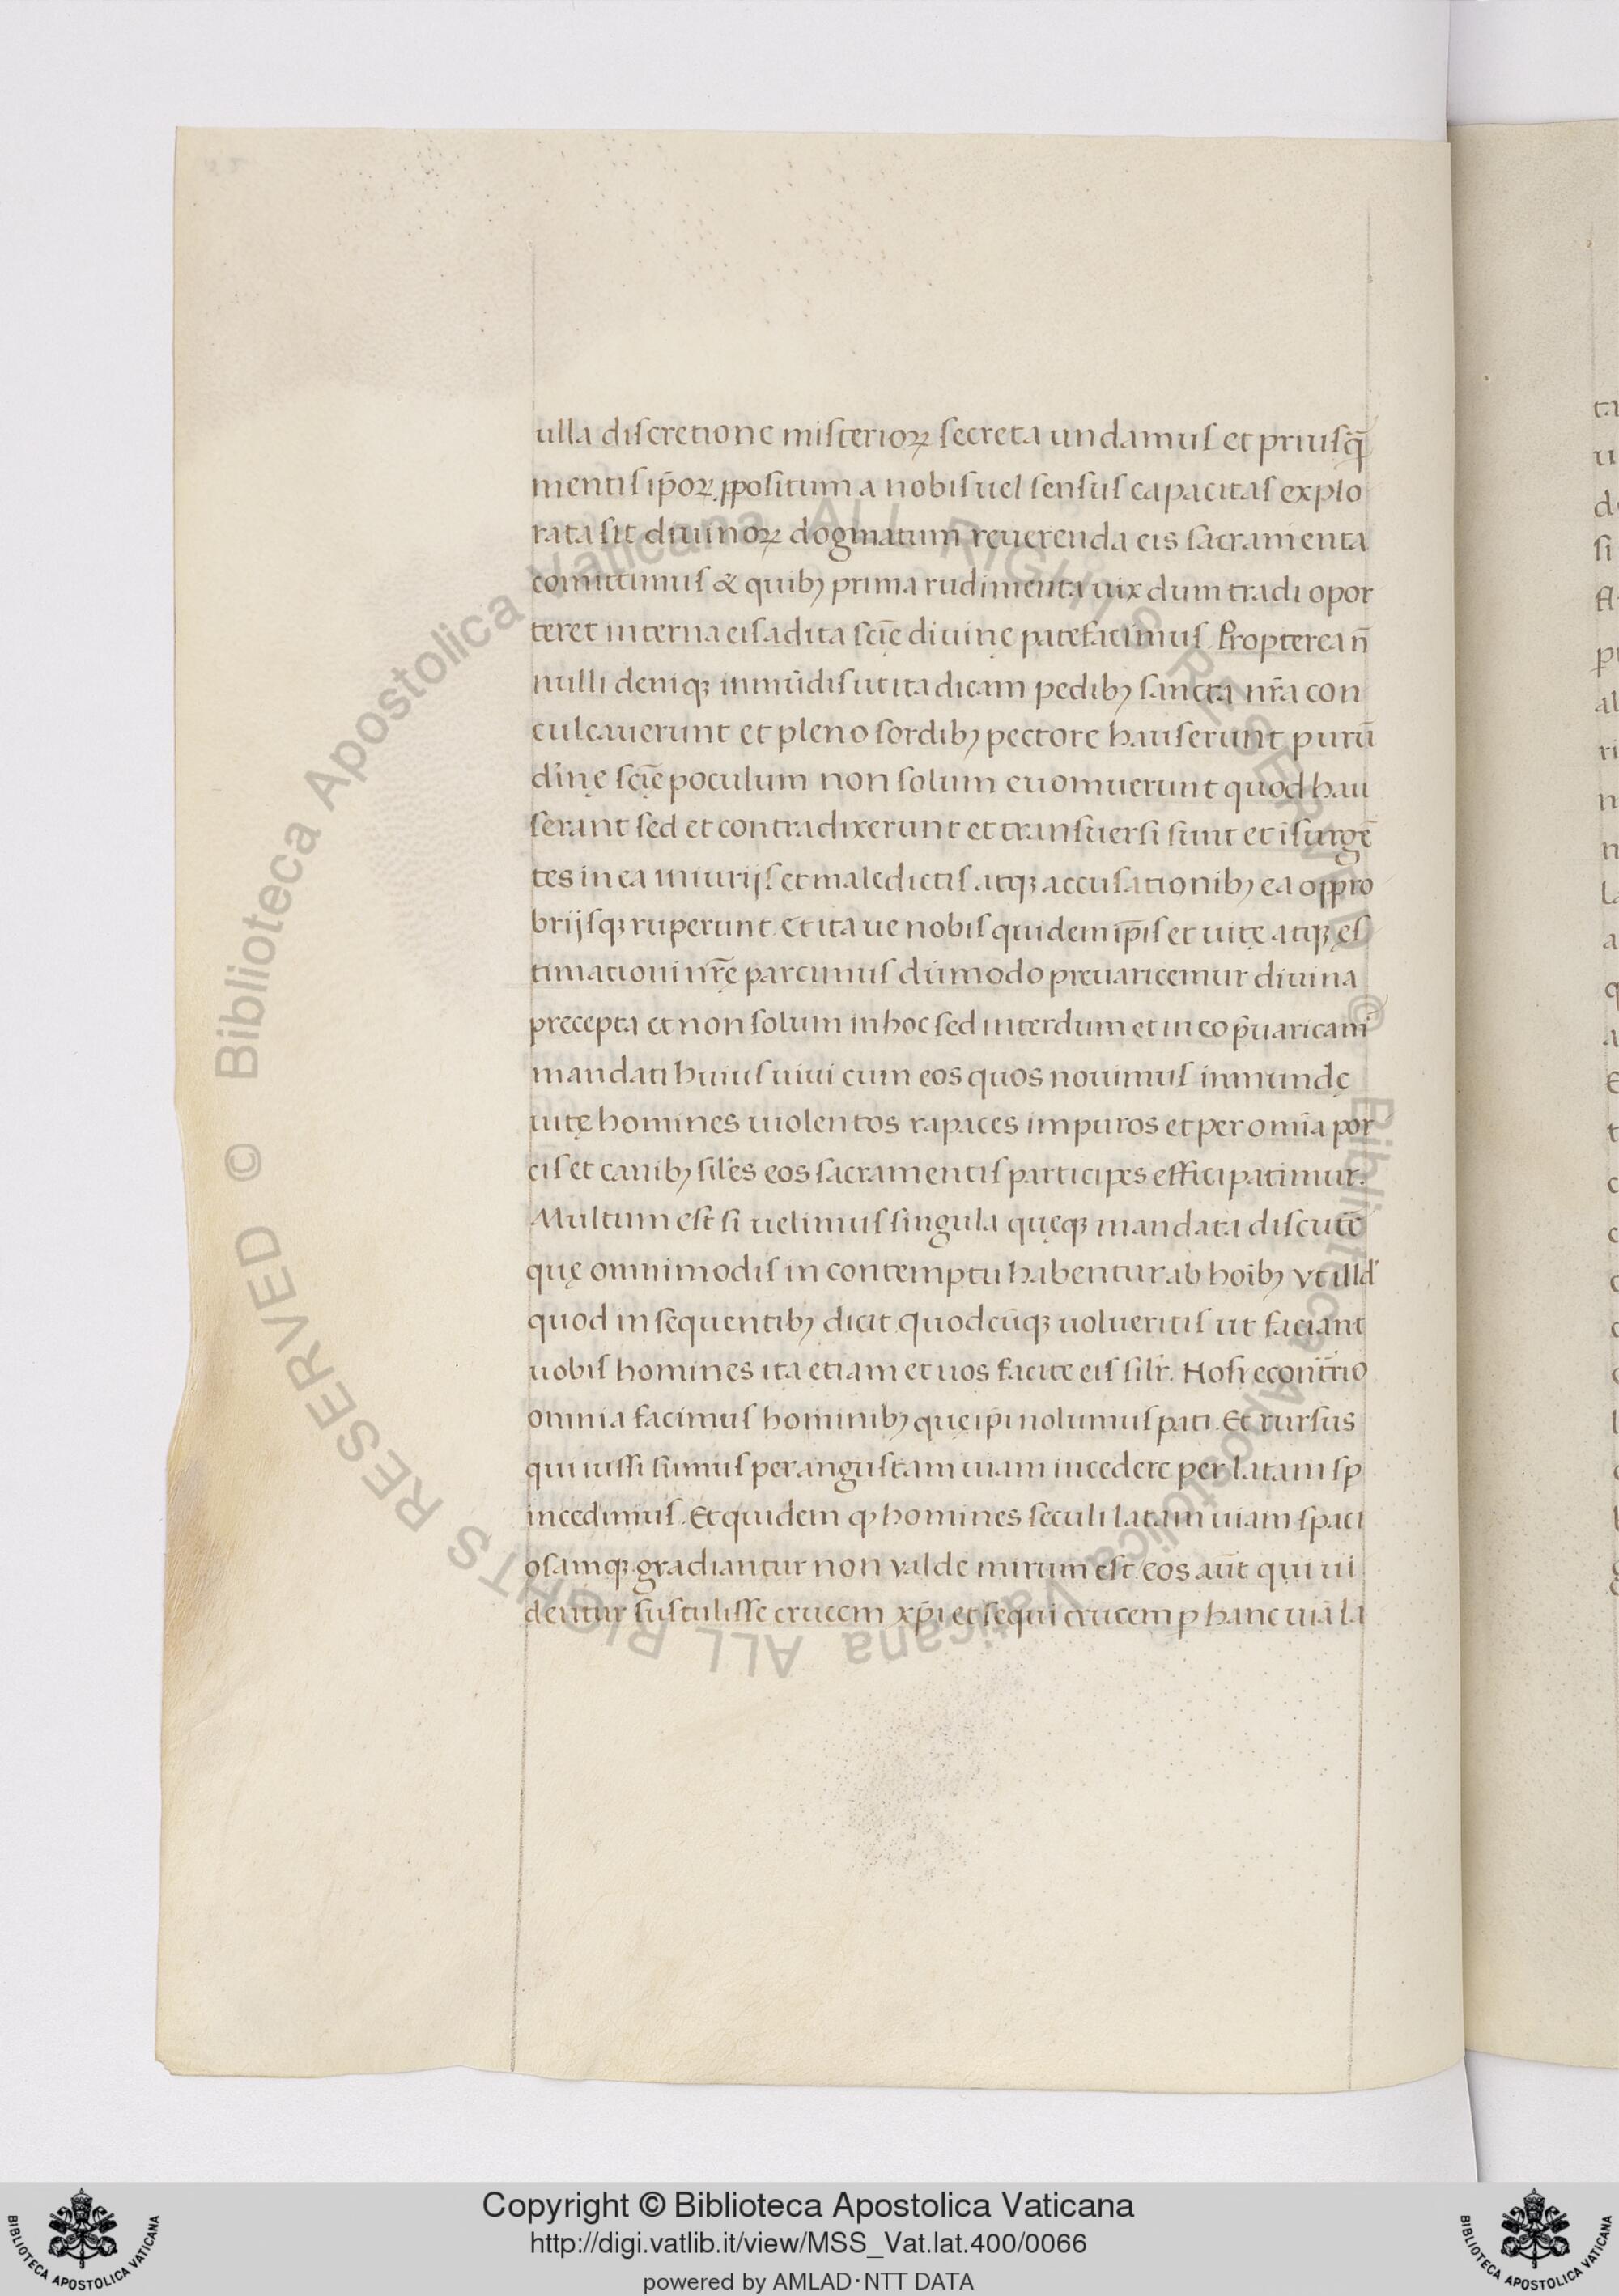 ulla discretione misterioꝝ secreta undamus et priusq̄
mentis ip̄oꝝ ꝓpositum a nobis uel sensus capacitas explo
rata sit diuinoꝝ dogmatum reuerenda eis sacramenta
comittimus & quibꝫ prima rudimenta uix dum tradi opor
teret interna eis adita scię̄ diuinę patefacimus. Propterea n̄
nulli deniqꝫ inmūdis ut ita dicam pedibꝫ sancta nr̄a con
culcauerunt et pleno sordibꝫ pectore hauserunt purū
diń̨e scię̄ poculum non solum euomuerunt quod hau
serant sed et contradixerunt et transuersi sunt et īsurgē
tes in ea iniurijs et maledictis atqꝫ accusationibꝫ ea oppro
brijsqꝫ ruperunt. Et ita ue nobis quidem ip̄is et uitę atqꝫ ęs
timationi nr̄ę parcimus dūmodo preuaricemur diuina
precepta et non solum in hoc sed interdum et in eo p̄uaricam̄
mandati huius uiui cum eos quos nouimus inmundę
uitę homines uiolentos rapaces impuros et per omīa por
cis et canibꝫ siles eos sacramentis participes effici patimur.
Multum est si uelimus singula quęqꝫ mandata discutē
quę omnimodis in contemptu habentur ab hoībꝫ vt illd'
quod in sequentibꝫ dicit quodcūqꝫ uolueritis ut faciant
uobis homines ita etiam et uos facite eis silr̄. Nos econtrīo
omnia facimus hominibꝫ quę ip̄i nolumus pati. Et rursus
qui iussi sumus per angustam uiam incedere per latam sp
incedimus. Et quidem ꝙ homines seculi latam uiam spaci
osamqꝫ gradiantur non valde mirum est. eos aūt qui ui
dentur sustulisse crucem xp̄i et sequi crucem ꝑ hanc uiā la
ta
Copyright © Biblioteca Apostolica Vaticana
http://digi.vatlib.it/view/MSS_Vat.lat.400/0066
powered by AMLAD·NTT DATA
BIBLIOTECA APOSTOLICA VATICANA
BIBLIOTECA APOSTOLICA VATICANA
© Biblioteca Apostolica Vaticana ALL RIGHTS RESERVED
© Biblioteca Apostolica Vaticana ALL RIGHTS RESERVED